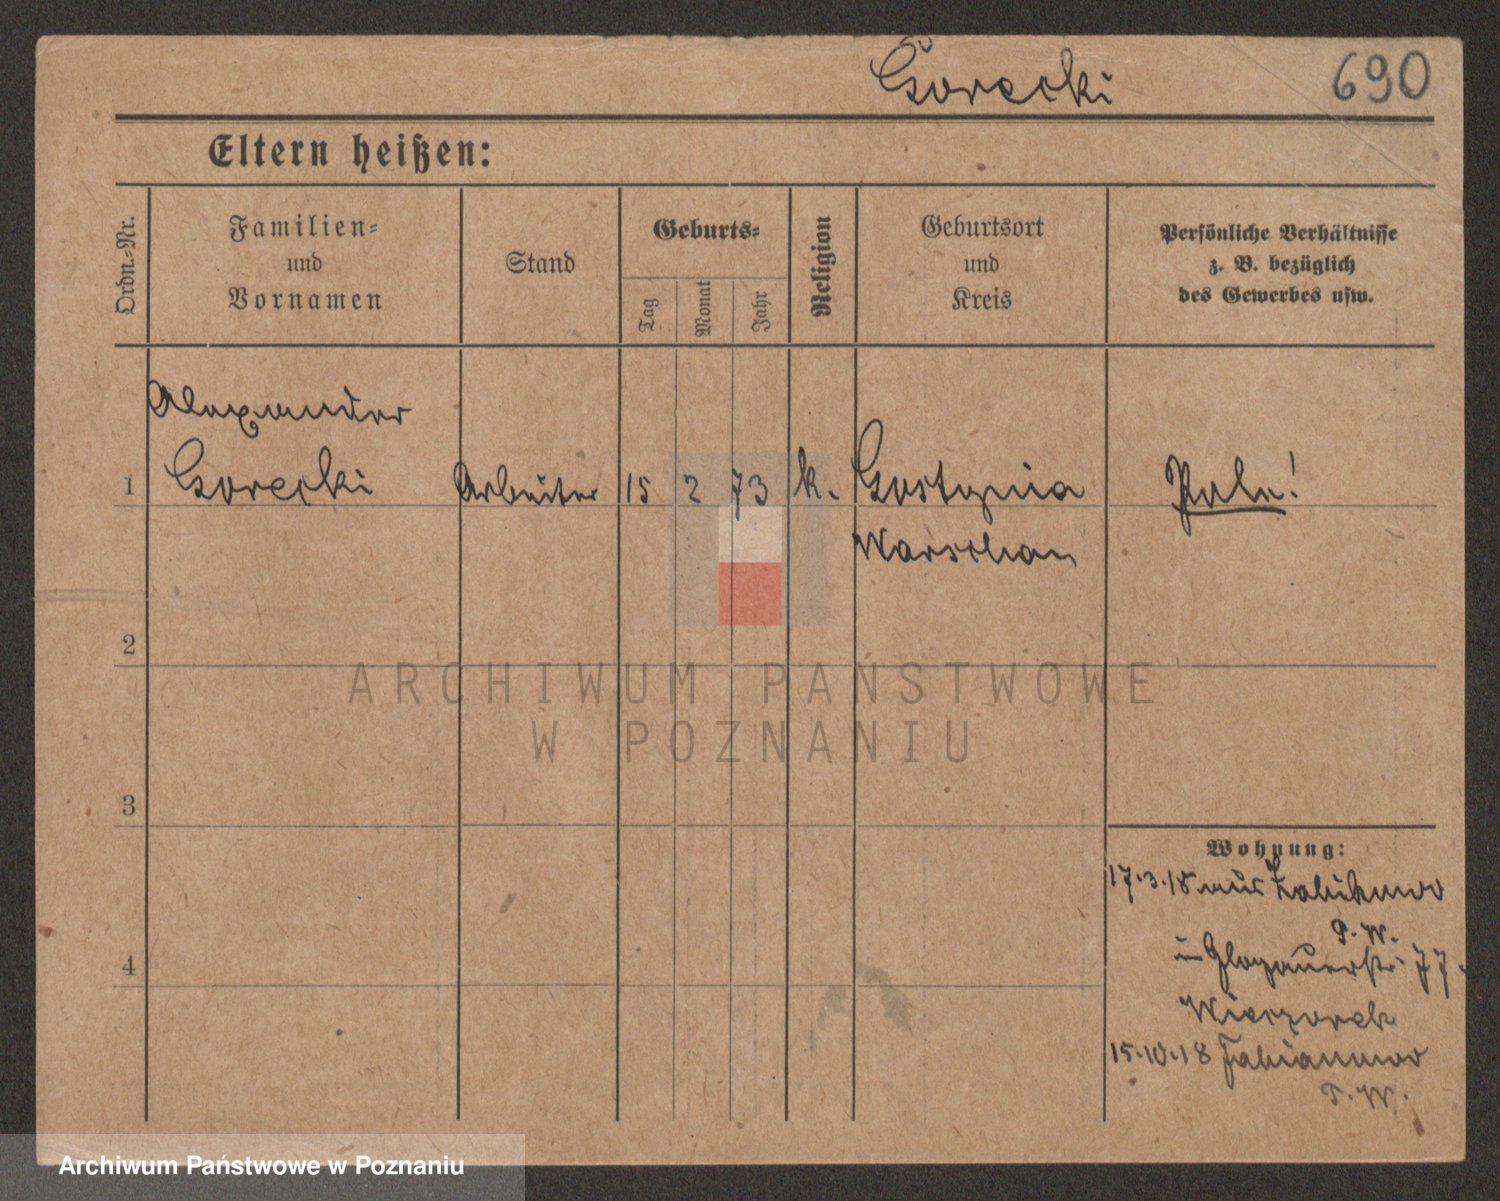 Gorecki
690
Eltern heißen:
Ordn.-Nr.
Familien-
und
Vornamen
Stand
Geburts-
Tag
Monat
Jahr
Religion
Geburtsort
und
Kreis
Persönliche Verhältnisse
z. B. bezüglich
des Gewerbes usw.
Alexander
1 Gorecki Arbeiter 15 2 73 k. Gostynia Pole!
Warschau
2
ARCHIWUM PAŃSTWOWE
W POZNANIU
3
Wohnung:
17.3.18 aus Zabikowo
P. W.
4
in Glogauerstr. 77.
Wieczorek
15.10.18 Fabianowo
P. W.
Archiwum Państwowe w Poznaniu